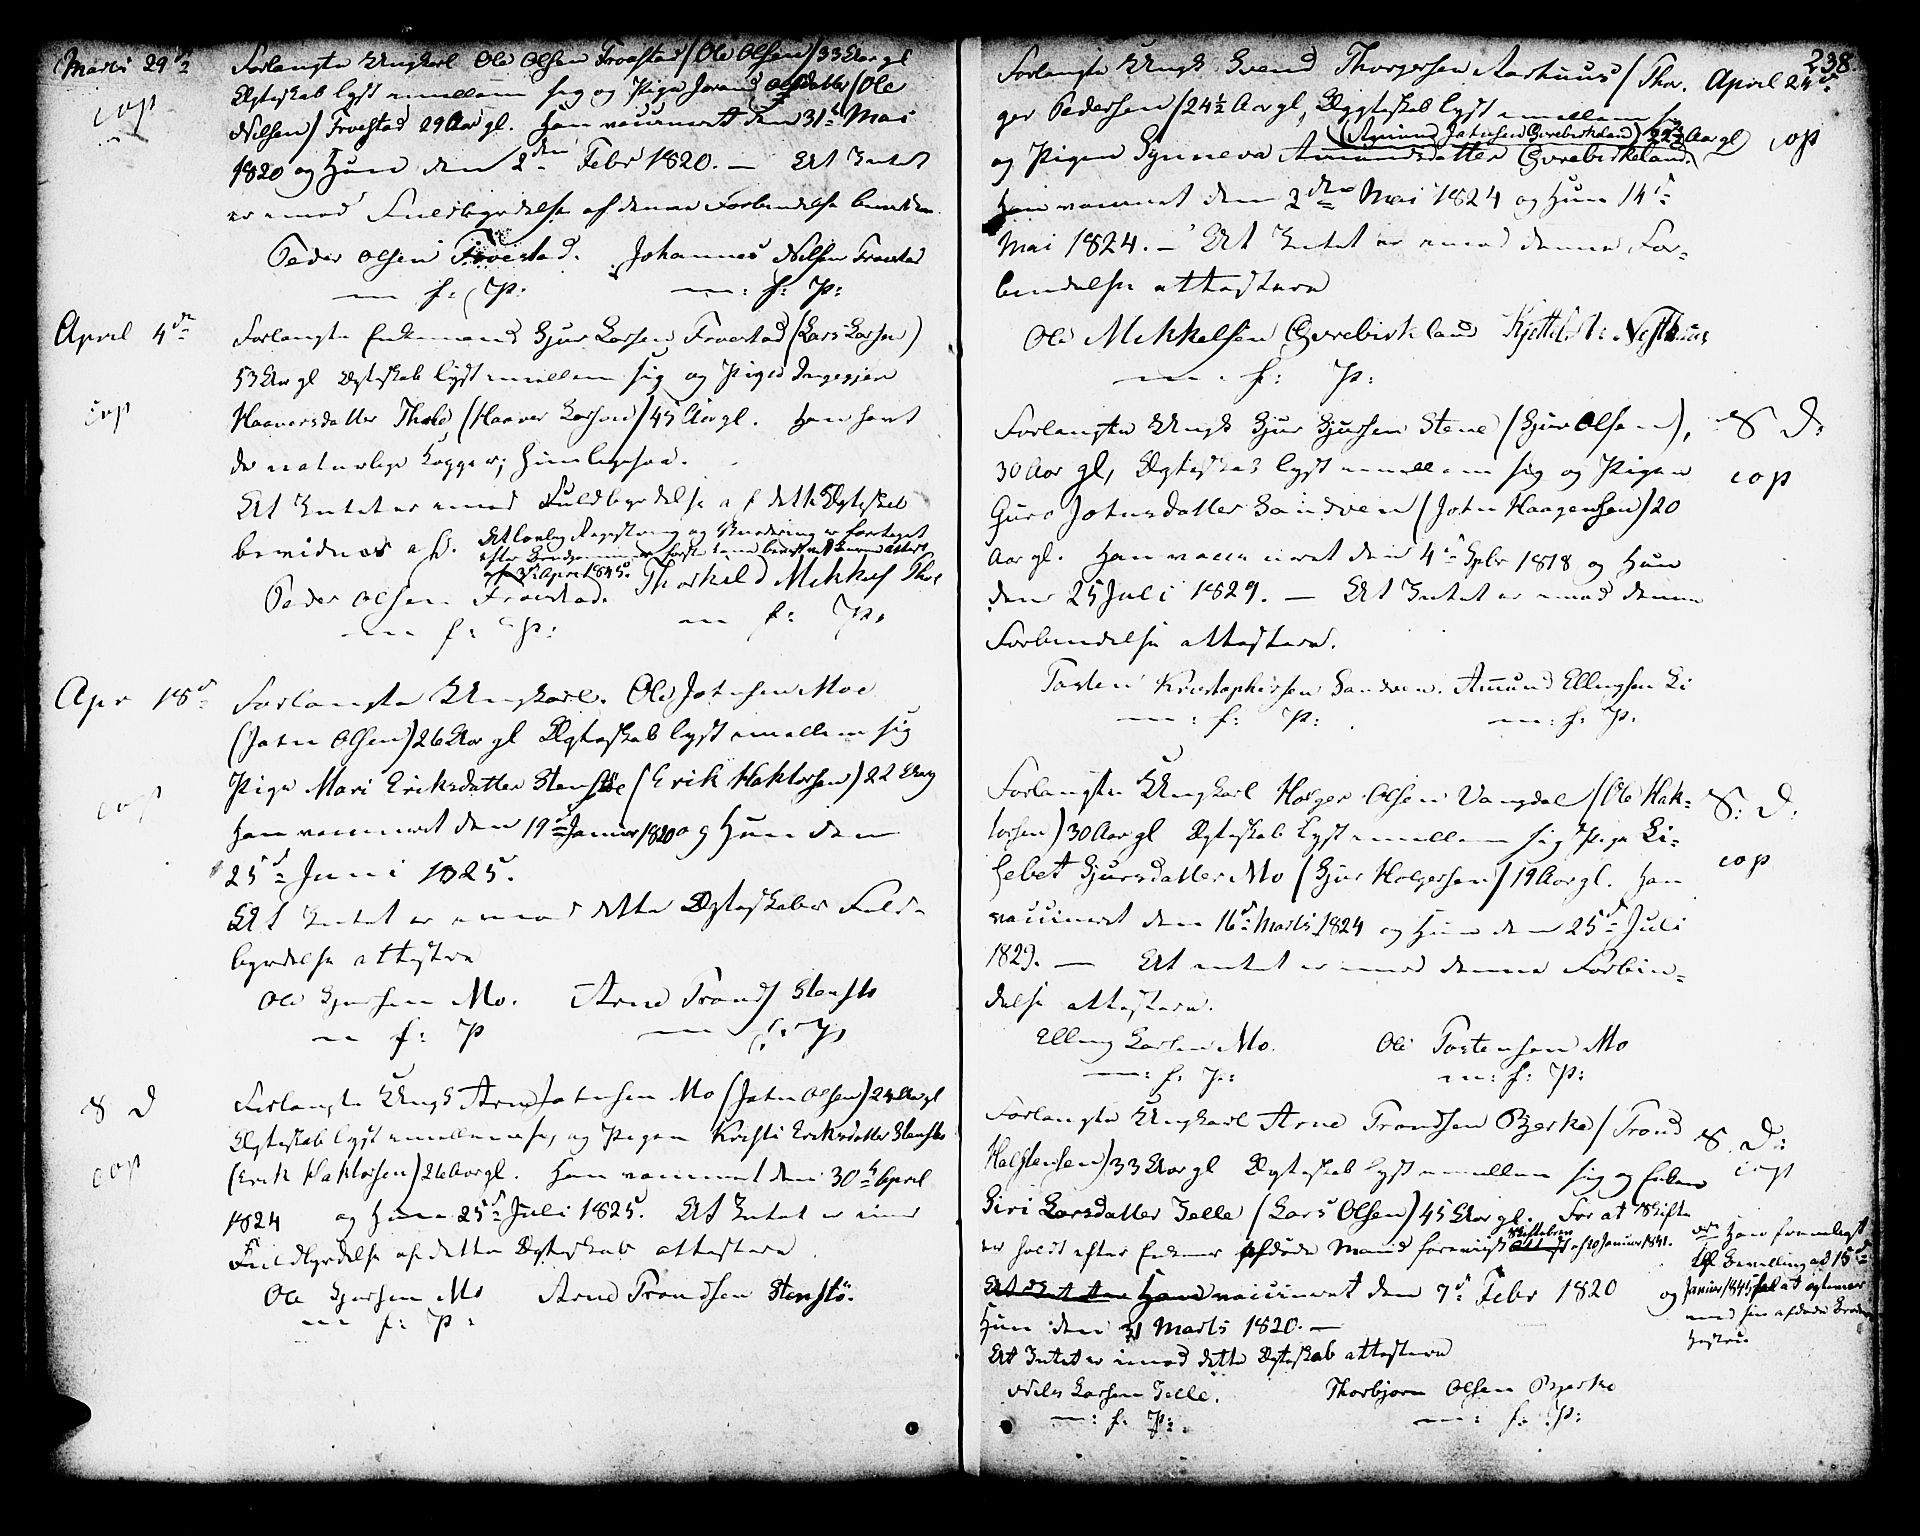 Marti 29d
cop
Forlangte Ungkarl Ole Olsen Froestad (Ole Olsen) 33 Aar gl
Ægteskab lyst imellem sig og Pige Joran Olsdatter (Ole
Nilsen) Froestad 29 Aar gl. Han vaccineret den 31te Mai
1820 og Hun den 2den Febr 1820. — At Intet
er imod Fuldbyrdelse af denne Forbindelse bevidnes
Peder Olsen Froestad. Johannes Nilsen Froestad
m. f: P: m: f: P:
April 4de
cop
Forlangte Enkemand Sjur Larsen Froestad (Lars Larsen)
53 Aar gl Ægteskab lyst imellem sig og Pigen Ingegjer
Haaversdatter Tho (Haaver Larsen) 45 Aar gl. Han havt
de naturlige Kopper;
At Intet er imod Fuldbyrdelse af dette Ægteskab
bevidnes af. At lovlig Registrering og Vurdering er foretaget
efter
af 3d April 1845.
Peder Olsen Froestad. Thorkild Mikkels Tho
m f: P: m f: P:
Apr 18d
cop
Forlangte Ungkarl. Ole Johnsen Moe
(John Olsen) 26 Aar gl Ægteskab lyst imellem sig
Pige Mari Eriksdatter Stenstø (Erik Haktorsen) 22 Aar g
Han vaccineret den 19de Januar 1820 og Hun den
25d Juni 1825.
At Intet er imod dette Ægteskabs Fuld-
byrdelse attestere
Ole Sjursen Mo. Arne Tronds Stenstø
m f: P m f: P
S D
cop
Forlangte Ungk Arne Johnsen Mo (John Olsen) 24 Aar gl
Ægteskab lyst imellem sig og Pigen Kristi Eriksdatter Stenstø
(Erik Haktorsen) 26 Aar gl. Han vaccineret den 30te April
1824 og Hun 25d Juli 1825. At Intet er imod
Fuldbyrdelse af dette Ægteskab attestere
Ole Sjursen Mo Arne Trondsen Stenstø.
m f: P:
238
Forlangte Ungk Svend Thorgersen Aarhuus (Thor-
ger Pedersen) 24½ Aar gl, Ægteskab lyst imellem sig
(Amund Johnsen Øvrebirkeland) 22¾ Aar gl
og Pigen Synneva Amundsdatter Øvrebirkeland.
Han vaccineret den 2den Mai 1824 og Hun 14d
Mai 1824. — At Intet er imod denne For-
bindelse attestere
Ole Mikkelsen Øvrebirkland Kjettil : Nesthuus
m. f: P:
April 24d
cop
Forlangte Ungk Sjur Sjursen Stene (Sjur Olsen),
30 Aar gl, Ægteskab lyst imellem sig og Pigen
Guro Johnsdatter Sandven (John Haagensen) 20
Aar gl. Han vaccineret den 4d Spbr 1818 og Hun
den 25 Juli 1829. — At Intet er imod denne
Forbindelse attestere.
Tosten Kristophersen Sandven. Amund Ellingsen Li
m: f: P: m: f: P:
S D:
cop
Forlangte Ungkarl Holger Olsen Vangdal (Ole Hak-
torsen) 30 Aar gl Ægteskab lyst imellem sig Pige Li-
sebet Sjursdatter Mo (Sjur Holgersen) 19 Aar gl. Han
vaccineret den 16d Marts 1824 og Hun den 25d Juli
1829. — At intet er imod denne Forbin-
delse attestere.
Elling Larsen Mo. Ole Tostensen Mo
m: f: P: m: f: P:
S: D:
cop
Forlangte Ungkarl Arne Trondsen Bjerke (Trond
Halstensen) 33 Aar gl Ægteskab lyst imellem sig og Enken
Siri Larsdatter Selle (Lars Olsen) 45 Aar gl. For at Skifte
er holdt efter Enkens afdøde Mand forevist Skiftebrev af 20 Januar 1841.
Han vaccineret den 7d Febr 1820
Hun den 31 Marts 1820. —
At Intet er imod dette Ægteskab attestere
Niels Larsen Selle. Thorbjørn Olsen Bjerke
m: f: P: m: f: P:
S. D:
cop
Han fremlagt
Bevilling ad 15d
Januar 1845 til at ægte
sin afdøde Broders
Hustru.